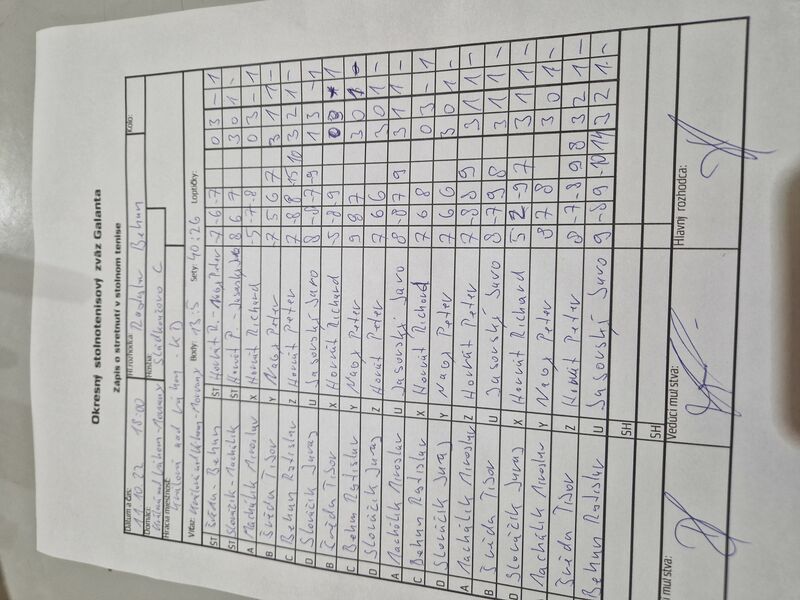 Okresný stolnotenisový zväz Galanta
Zápis o stretnutí v stolnom tenise
Dátum a čas: 11.10.22 18:00 Hl. rozhodca: Ratislav Behun Kolo:
Domáci: Hostia: Sládkovičovo C
Hracia miestnosť: Kráľová nad Váhom - KD
Víťaz: Body: 13:5 Sety: 40:26 Loptičky:
ŠT Švéda - Behun ŠT Horvát R. - Nagy Peter -7 -6 -7 0 3 - 1
ŠT Slováčik - Machálik ŠT Horvát P. - 8 6 7 3 0 1 -
A Machálik Miroslav X Horvát Richard -5 -7 -8 0 3 - 1
B Švéda Tibor Y Nagy Peter -7 5 6 7 3 1 1 -
C Behun Ratislav Z Horvát Peter 7 -8 -8 15 10 3 2 1 -
D Slováčik Juraj U Jasovský Juro 8 -8 -7 -9 1 3 - 1
B Švéda Tibor X Horvát Richard -5 -8 -9 0 3 - 1
C Behun Ratislav Y Nagy Peter 9 8 7 3 0 1 -
D Slováčik Juraj Z Horvát Peter 7 6 6 3 0 1 -
A Machálik Miroslav U Jasovský Juro 8 -8 7 9 3 1 1 -
C Behun Ratislav X Horvát Richard -7 -6 -8 0 3 - 1
D Slováčik Juraj Y Nagy Peter 7 6 6 3 0 1 -
A Machálik Miroslav Z Horvát Peter 7 -8 8 9 3 1 1 -
B Švéda Tibor U Jasovský Juro 8 -7 9 8 3 1 1 -
D Slováčik Juraj X Horvát Richard 5 -9 7 3 1 1 -
Machálik Miroslav Y Nagy Peter 8 7 8 3 0 1 -
Švéda Tibor Z Horvát Peter 8 -7 -8 9 8 3 2 1 -
Behun Ratislav U Jasovský Juro 9 -8 9 -10 14 3 2 1 -
SH
SH
mužstva: Vedúci mužstva: Hlavný rozhodca: